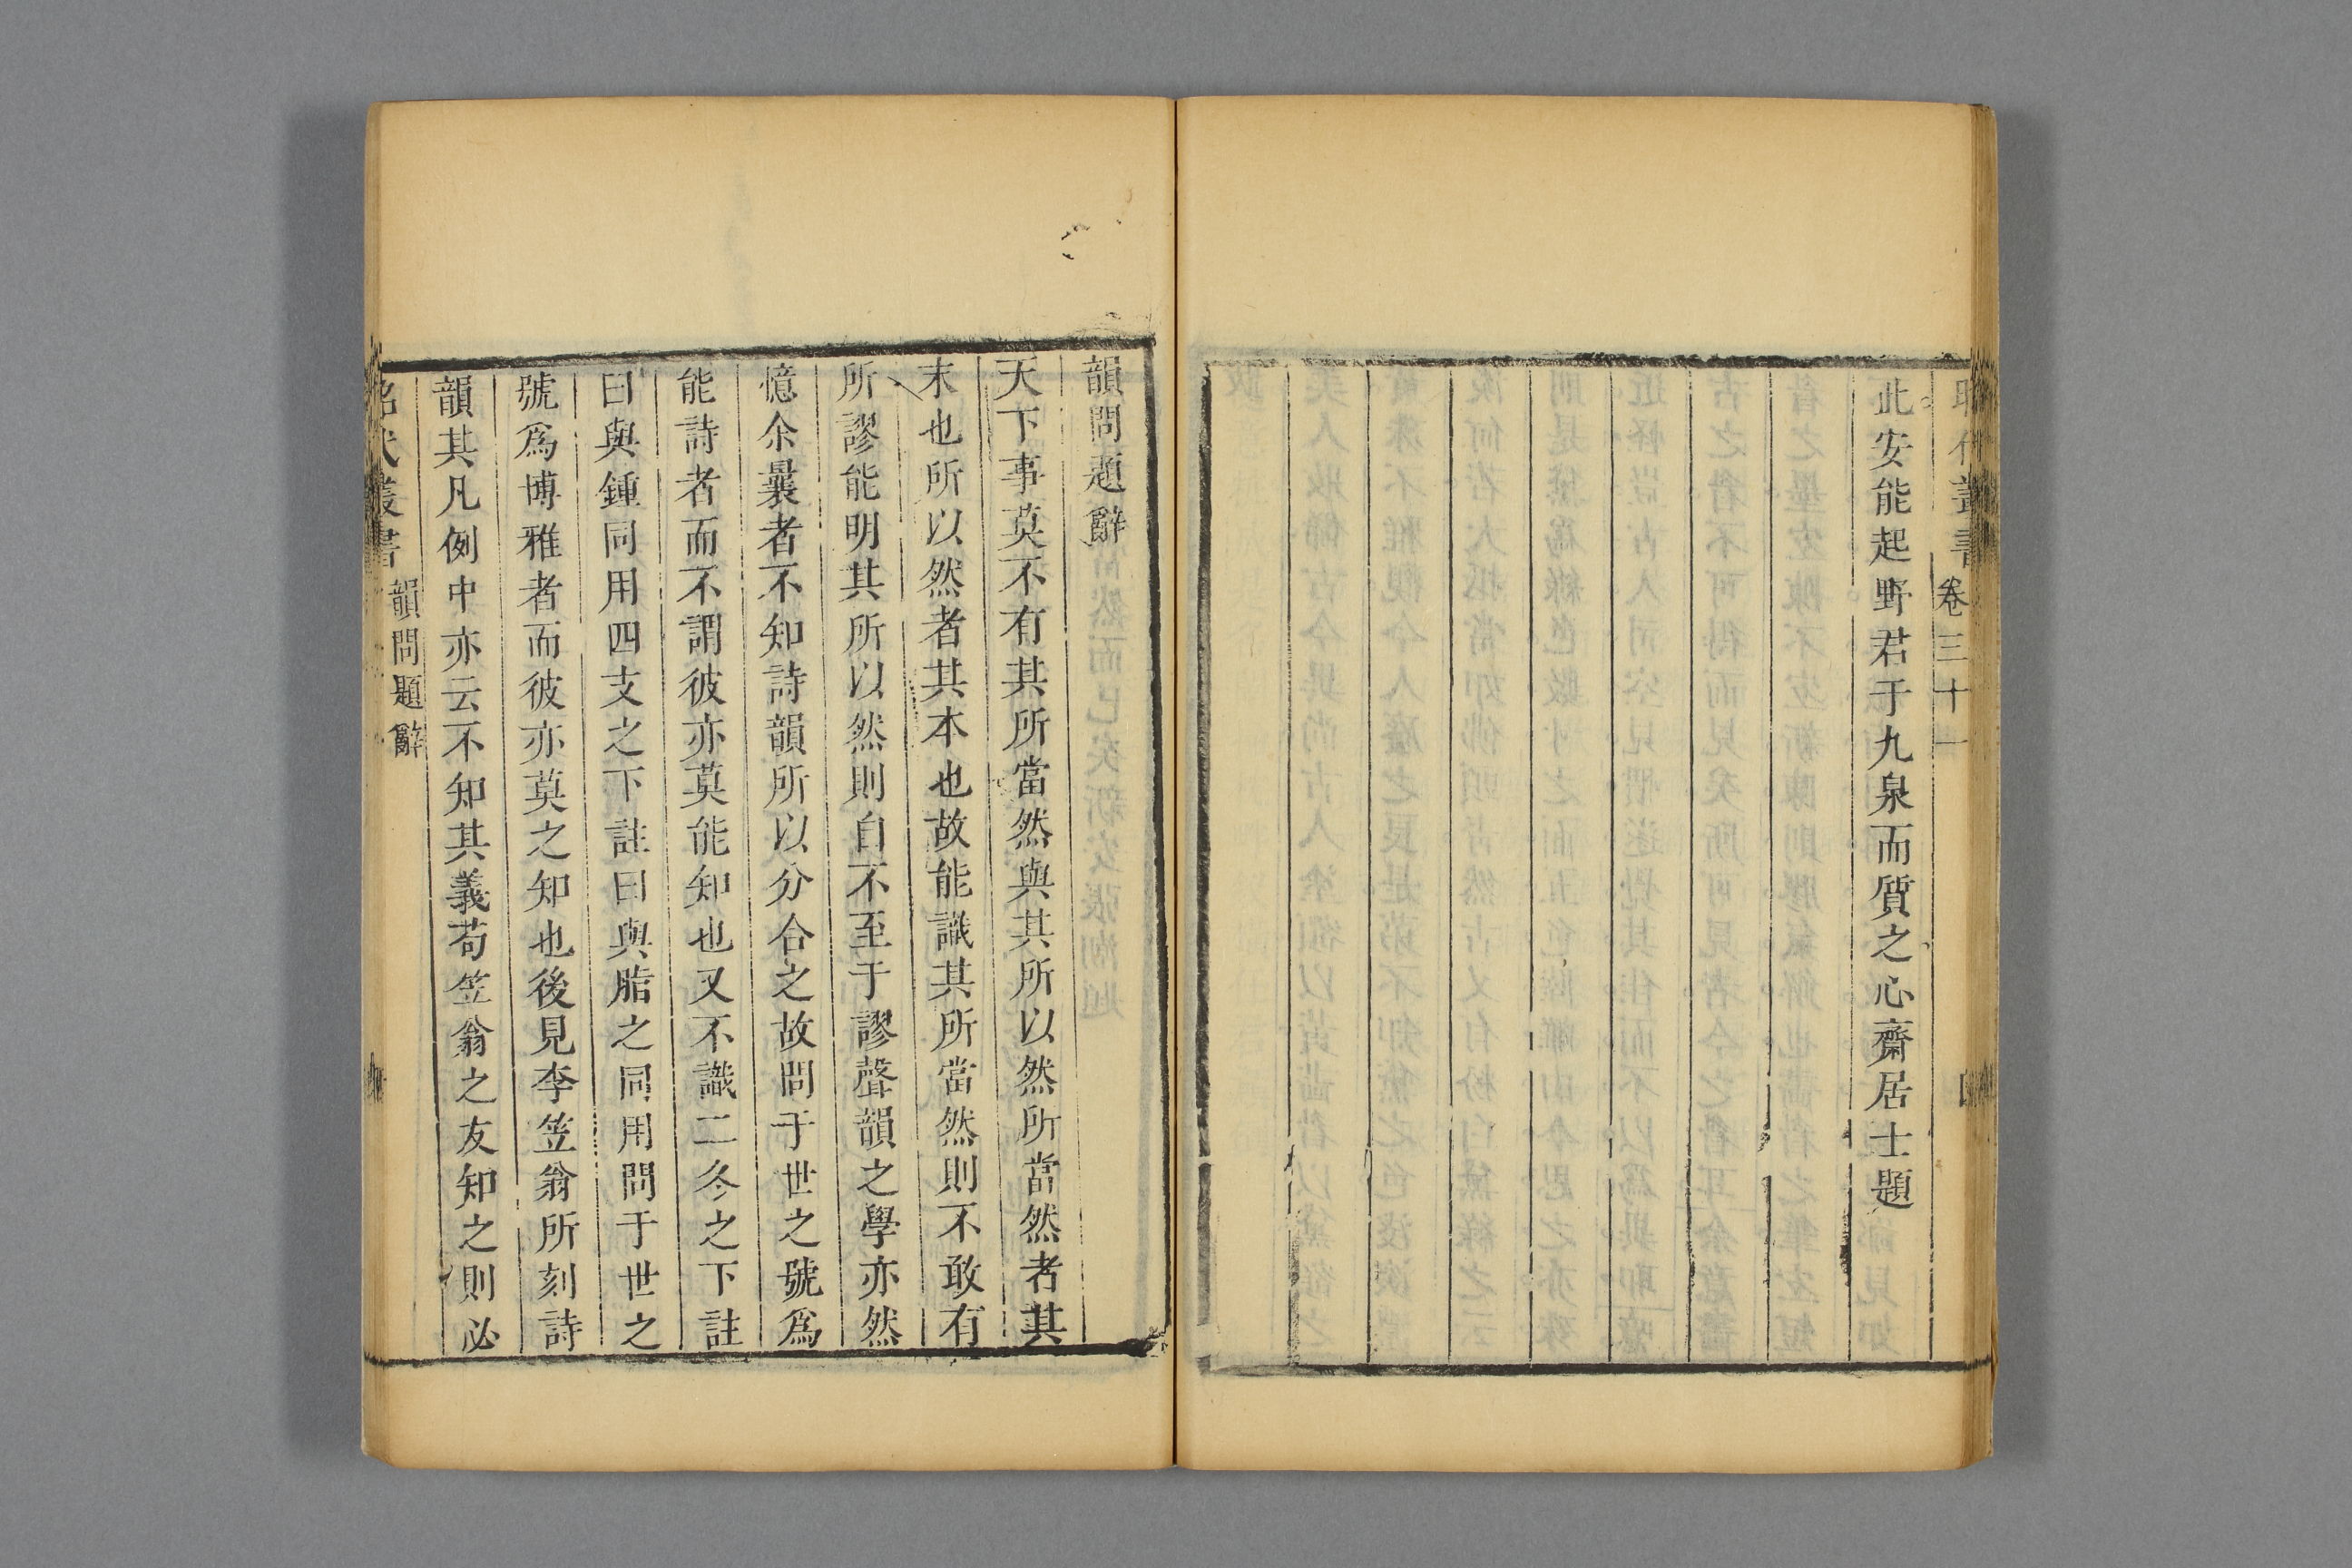 昭代叢書 卷三十一
此安能起野君于九泉而質之心齋居士題
韻問題辭
天下事莫不有其所當然與其所以然所當然者其
末也所以然者其本也故能識其所當然則不敢有
所謬能明其所以然則自不至于謬聲韻之學亦然
憶余曩者不知詩韻所以分合之故問于世之號爲
能詩者而不謂彼亦莫能知也又不識二冬之下註
曰與鍾同用四支之下註曰與脂之同用問于世之
號爲博雅者而彼亦莫之知也後見李笠翁所刻詩
韻其凡例中亦云不知其義苟笠翁之友知之則必
昭代叢書 韻問題辭